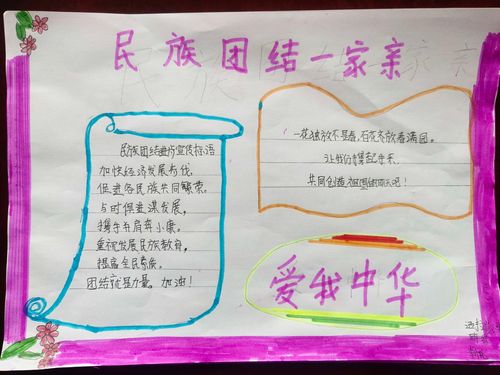 民族团结一家亲
民族团结进步宣传标语
加快经济发展步伐,
促进各民族共同繁荣,
与时俱进谋发展,
携手并肩奔小康。
重视发展民族教育,
提高全民素质。
团结就是力量。加油!
一花独放不是春,百花齐放春满园。
让我们携起手来,
共同创造祖国的明天吧!
爱我中华